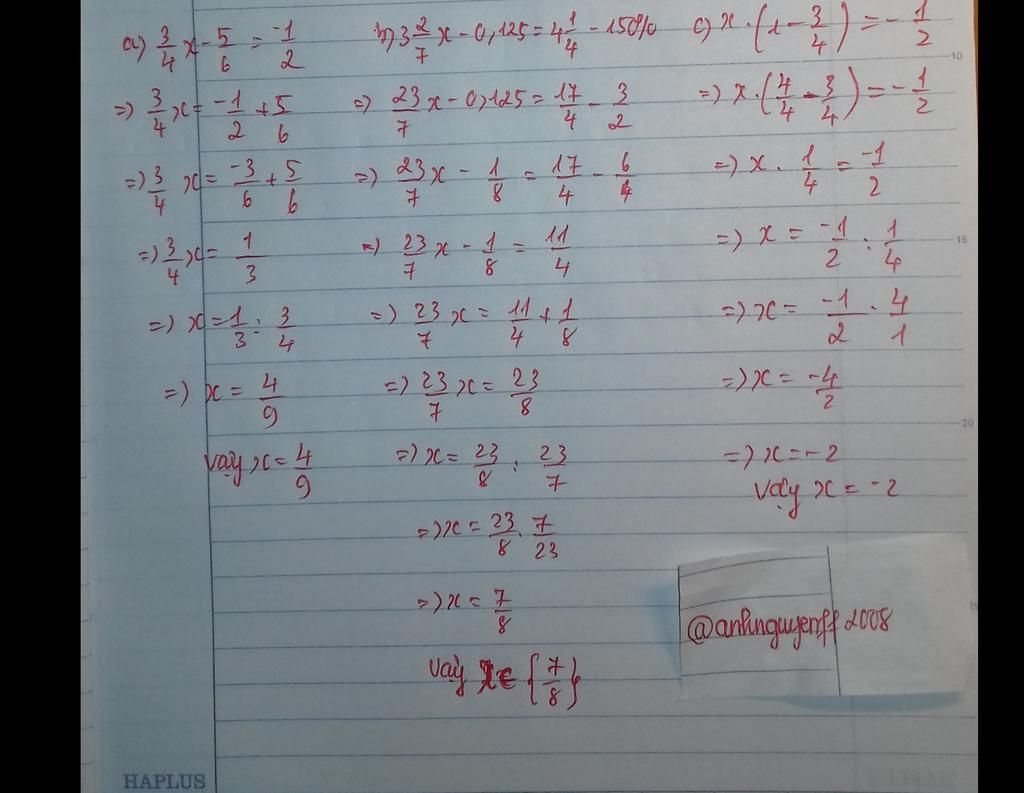 a) 3/4 x - 5/6 = -1/2
=) 3/4 x = -1/2 + 5/6
=) 3/4 x = -3/6 + 5/6
=) 3/4 x = 1/3
=) x = 1/3 : 3/4
=) x = 4/9
vậy x = 4/9
b) 3 2/7 x - 0,125 = 4 1/4 - 150%
=) 23/7 x - 0,125 = 17/4 - 3/2
=) 23/7 x - 1/8 = 17/4 - 6/4
=) 23/7 x - 1/8 = 11/4
=) 23/7 x = 11/4 + 1/8
=) 23/7 x = 23/8
=) x = 23/8 : 23/7
=) x = 23/8 . 7/23
=) x = 7/8
vậy x ∈ {7/8}
c) x . (1 - 3/4) = - 1/2
=) x . (4/4 - 3/4) = - 1/2
=) x . 1/4 = -1/2
=) x = -1/2 : 1/4
=) x = -1/2 . 4/1
=) x = -4/2
=) x = -2
vậy x = -2
@anhnguyenff2008
HAPLUS
10
15
20